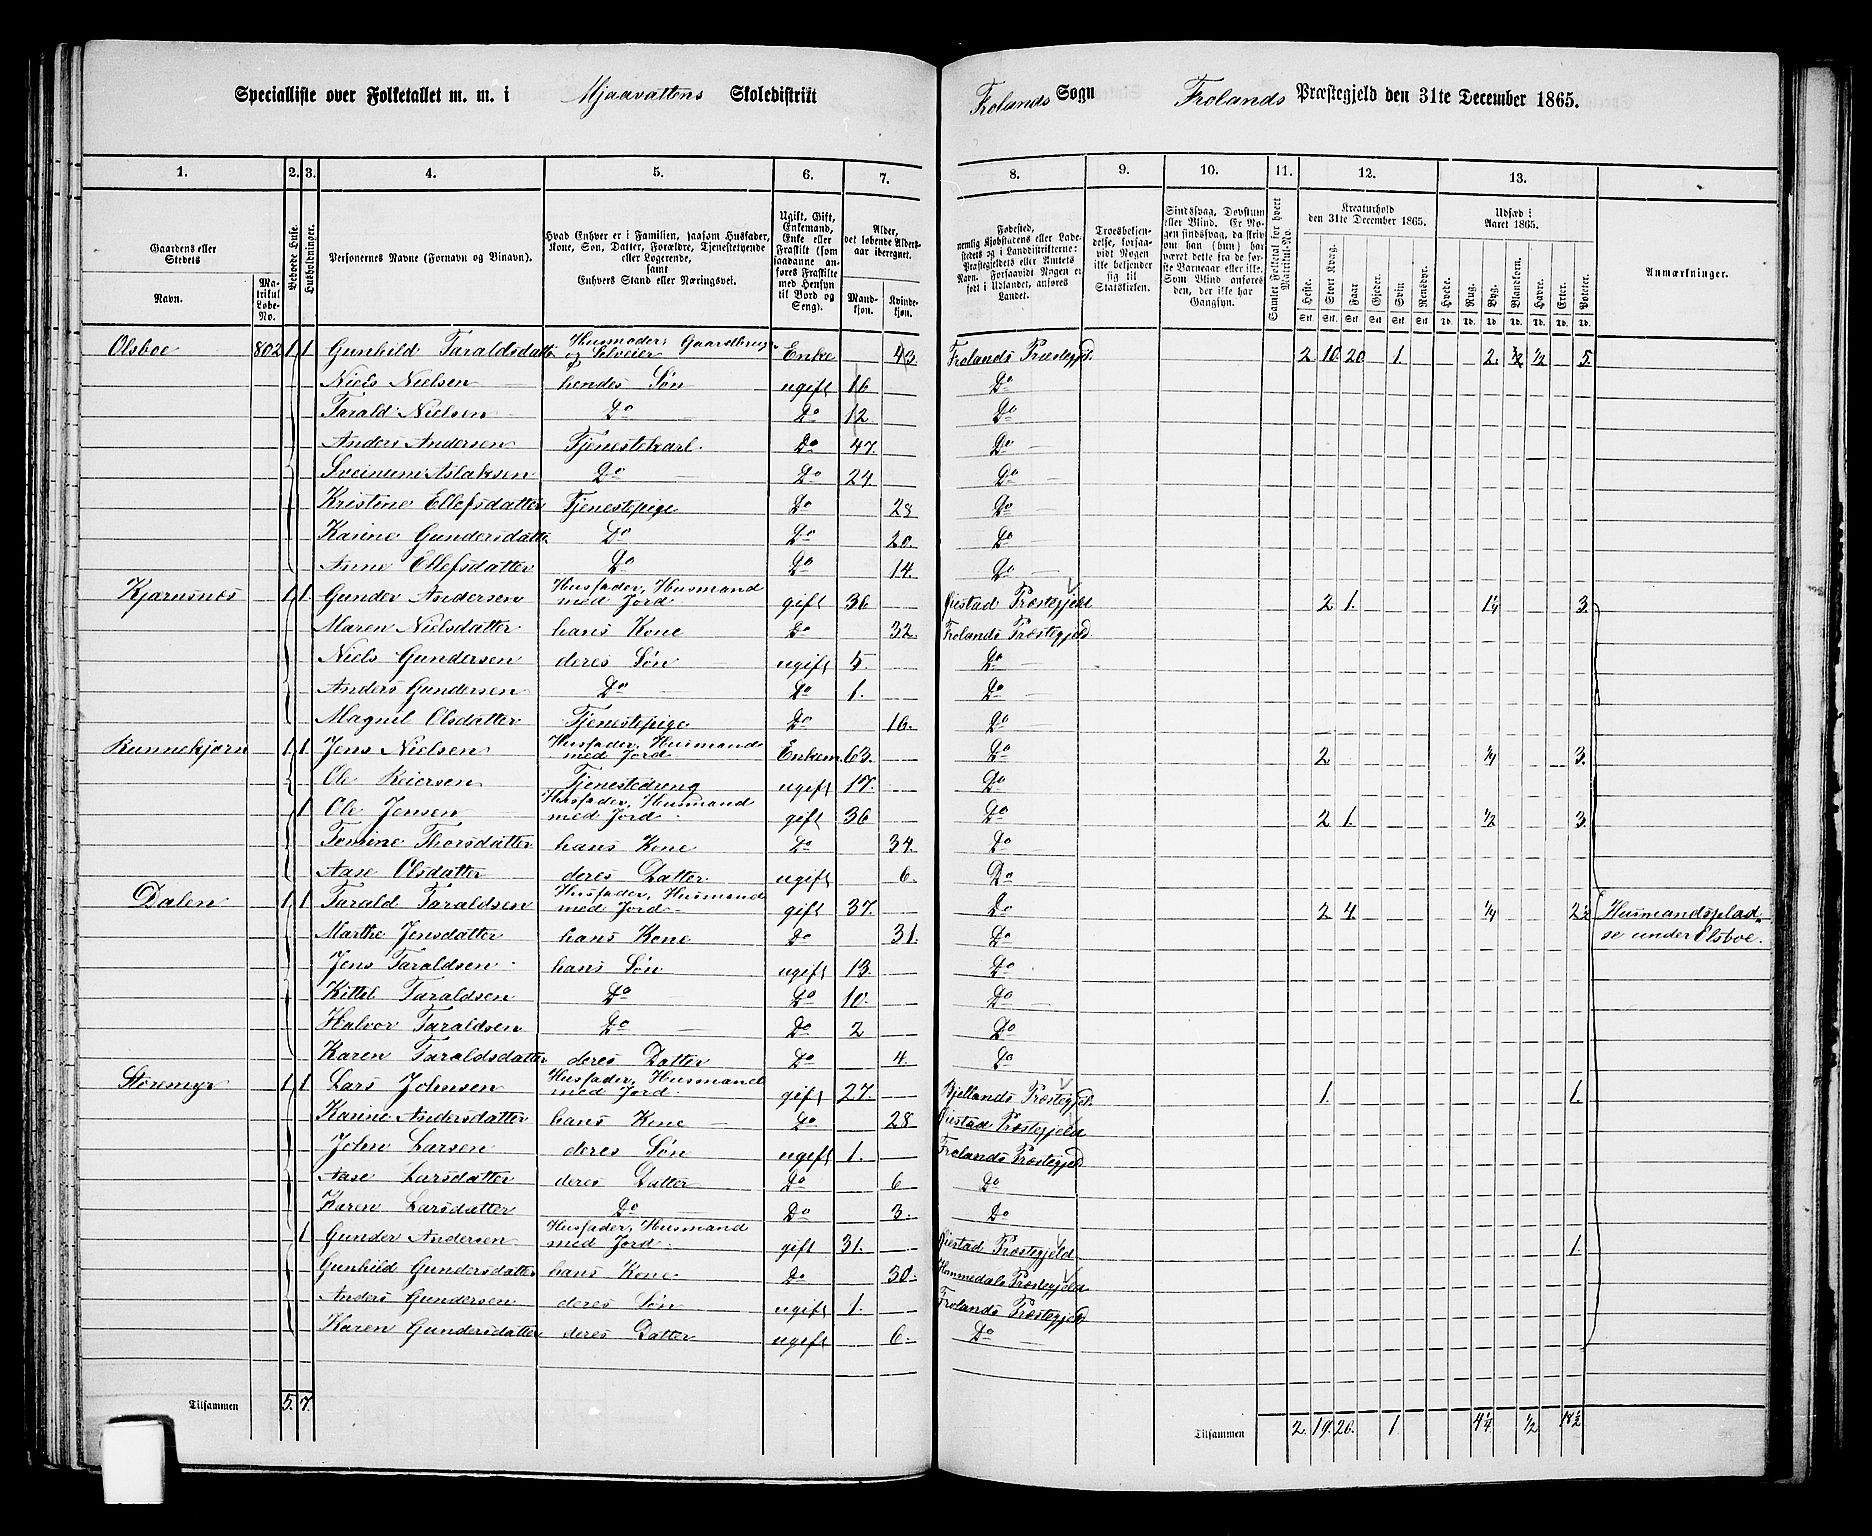 Specialliste over Folketallet m. m. i Mjaavattens Skoledistrikt
Frolands Sogn Frolands Præstegjeld den 31te December 1865.
1. 2. 3. 4. 5. 6. 7. 8. 9. 10. 11. 12. 13.
Gaardens eller Stedets Navn.
Matrikul Løbe-No.
Beboede Huse.
Husholdninger.
Personernes Navne (Fornavn og Binavn).
Hvad Enhver er i Familien, saasom Husfader, Kone, Søn, Datter, Forældre, Tjenestetyende eller Logerende, samt Enhvers Stand eller Næringsvei.
Ugift, Gift, Enkemand, Enke eller Fraskilt (som saadanne anføres Fraskilte med Hensyn til Bord og Seng).
Alder, det løbende Alders-aar iberegnet.
Mandkjøn.
Kvindekjøn.
Fødested, nemlig Kjøbstadens eller Ladestedets og i Landdistrikterne: Præstegjeldets eller Amtets Navn. Forsaavidt Nogen er født i Udlandet, anføres Landet.
Troesbekjendelse, forsaavidt Nogen ikke bekjender sig til Statskirken.
Sindssvag, Døvstum eller Blind. Er Nogen sindssvag, da skriv om han (hun) har været dette fra de første Barneaar eller ikke. Som Blind anføres den, der ikke har Gangsyn.
Samlet Folketal for hvert Matrikul-No.
Kreaturhold den 31te December 1865.
Heste. Stort Kvæg. Faar. Gjeder. Sviin. Rensdyr.
Udsæd i Aaret 1865.
Hvede. Rug. Byg. Blandkorn. Havre. Erter. Poteter.
Anmærkninger.
Olsboe 802 1 1 Gunhild Taraldsdatter Husmoder, Gaardbruger og Selveier Enke 43 Frolands Præstegjd. 2 10. 20 1 2. ½ ½ 5.
Niels Nielsen hendes Søn ugift 16 Do
Tarald Nielsen Do Do 12 Do
Anders Andersen Tjenestekarl Do 47. Do
Sveinum Aslaksen Do Do 24. Do
Kristine Ellefsdatter Tjenestepige Do 28 Do
Karine Gundersdatter Do Do 20. Do
Anne Ellefsdatter Do Do 14. Do
Kjærusnes 1 1. Gunder Andersen Husfader, Husmand med Jord gift 36 Øiestad Præstegjeld 2 1. 1¼ 3.
Maren Nielsdatter hans Kone Do 32. Frolands Præstegjeld.
Niels Gundersen deres Søn ugift 5. Do
Anders Gundersen Do Do 1. Do
Magnil Olsdatter Tjenestepige Do 16. Do
Runnekjørn 1. 1. Jens Nielsen Husfader, Husmand med Jord Enkem. 63. Do 2 ¼ 3.
Ole Reiersen Tjenestedreng ugift 17. Do
1 Ole Jensen Husfader, Husmand med Jord. gift 36 Do 2 1. ½ 3.
Tomine Thorsdatter hans Kone Do 34. Do
Aase Olsdatter deres Datter. ugift 6. Do
Dalen 1 1 Tarald Taraldsen Husfader, Husmand med Jord. gift 37. Do 2 4. ¼ 2½ Husmandsplad-
Marthe Jensdatter hans Kone Do 31. Do se under Olsboe.
Jens Taraldsen. hans Søn ugift 13. Do
Kittel Taraldsen Do Do 10. Do
Halvor Taraldsen Do Do 2 Do
Karen Taraldsdatter deres Datter Do 4. Do
Storemyr 1. 1 Lars Johnsen Husfader, Husmand med Jord. gift 27. Bjellands Præstegjd. 1. 1.
Karine Andersdatter hans Kone Do 28 Øiestad Præstegjeld
John Larsen deres Søn ugift 1. Frolands Præstegjed
Aase Larsdatter deres Datter Do 6 Do
Karen Larsdatter Do Do 3. Do
1 Gunder Andersen Husfader, Husmand med Jord. gift 31. Øiestad Præstegjeld 1.
Gunhild Gundersdatter hans Kone Do 30. Hommedals Præstegjeld
Anders Gundersen deres Søn ugift 1. Frolands Præstegjeld
Karen Gundersdatter deres Datter ugift 6. Do
Tilsammen 5. 7. Tilsammen 2. 19. 26. 1. 4¼ ½ 18½